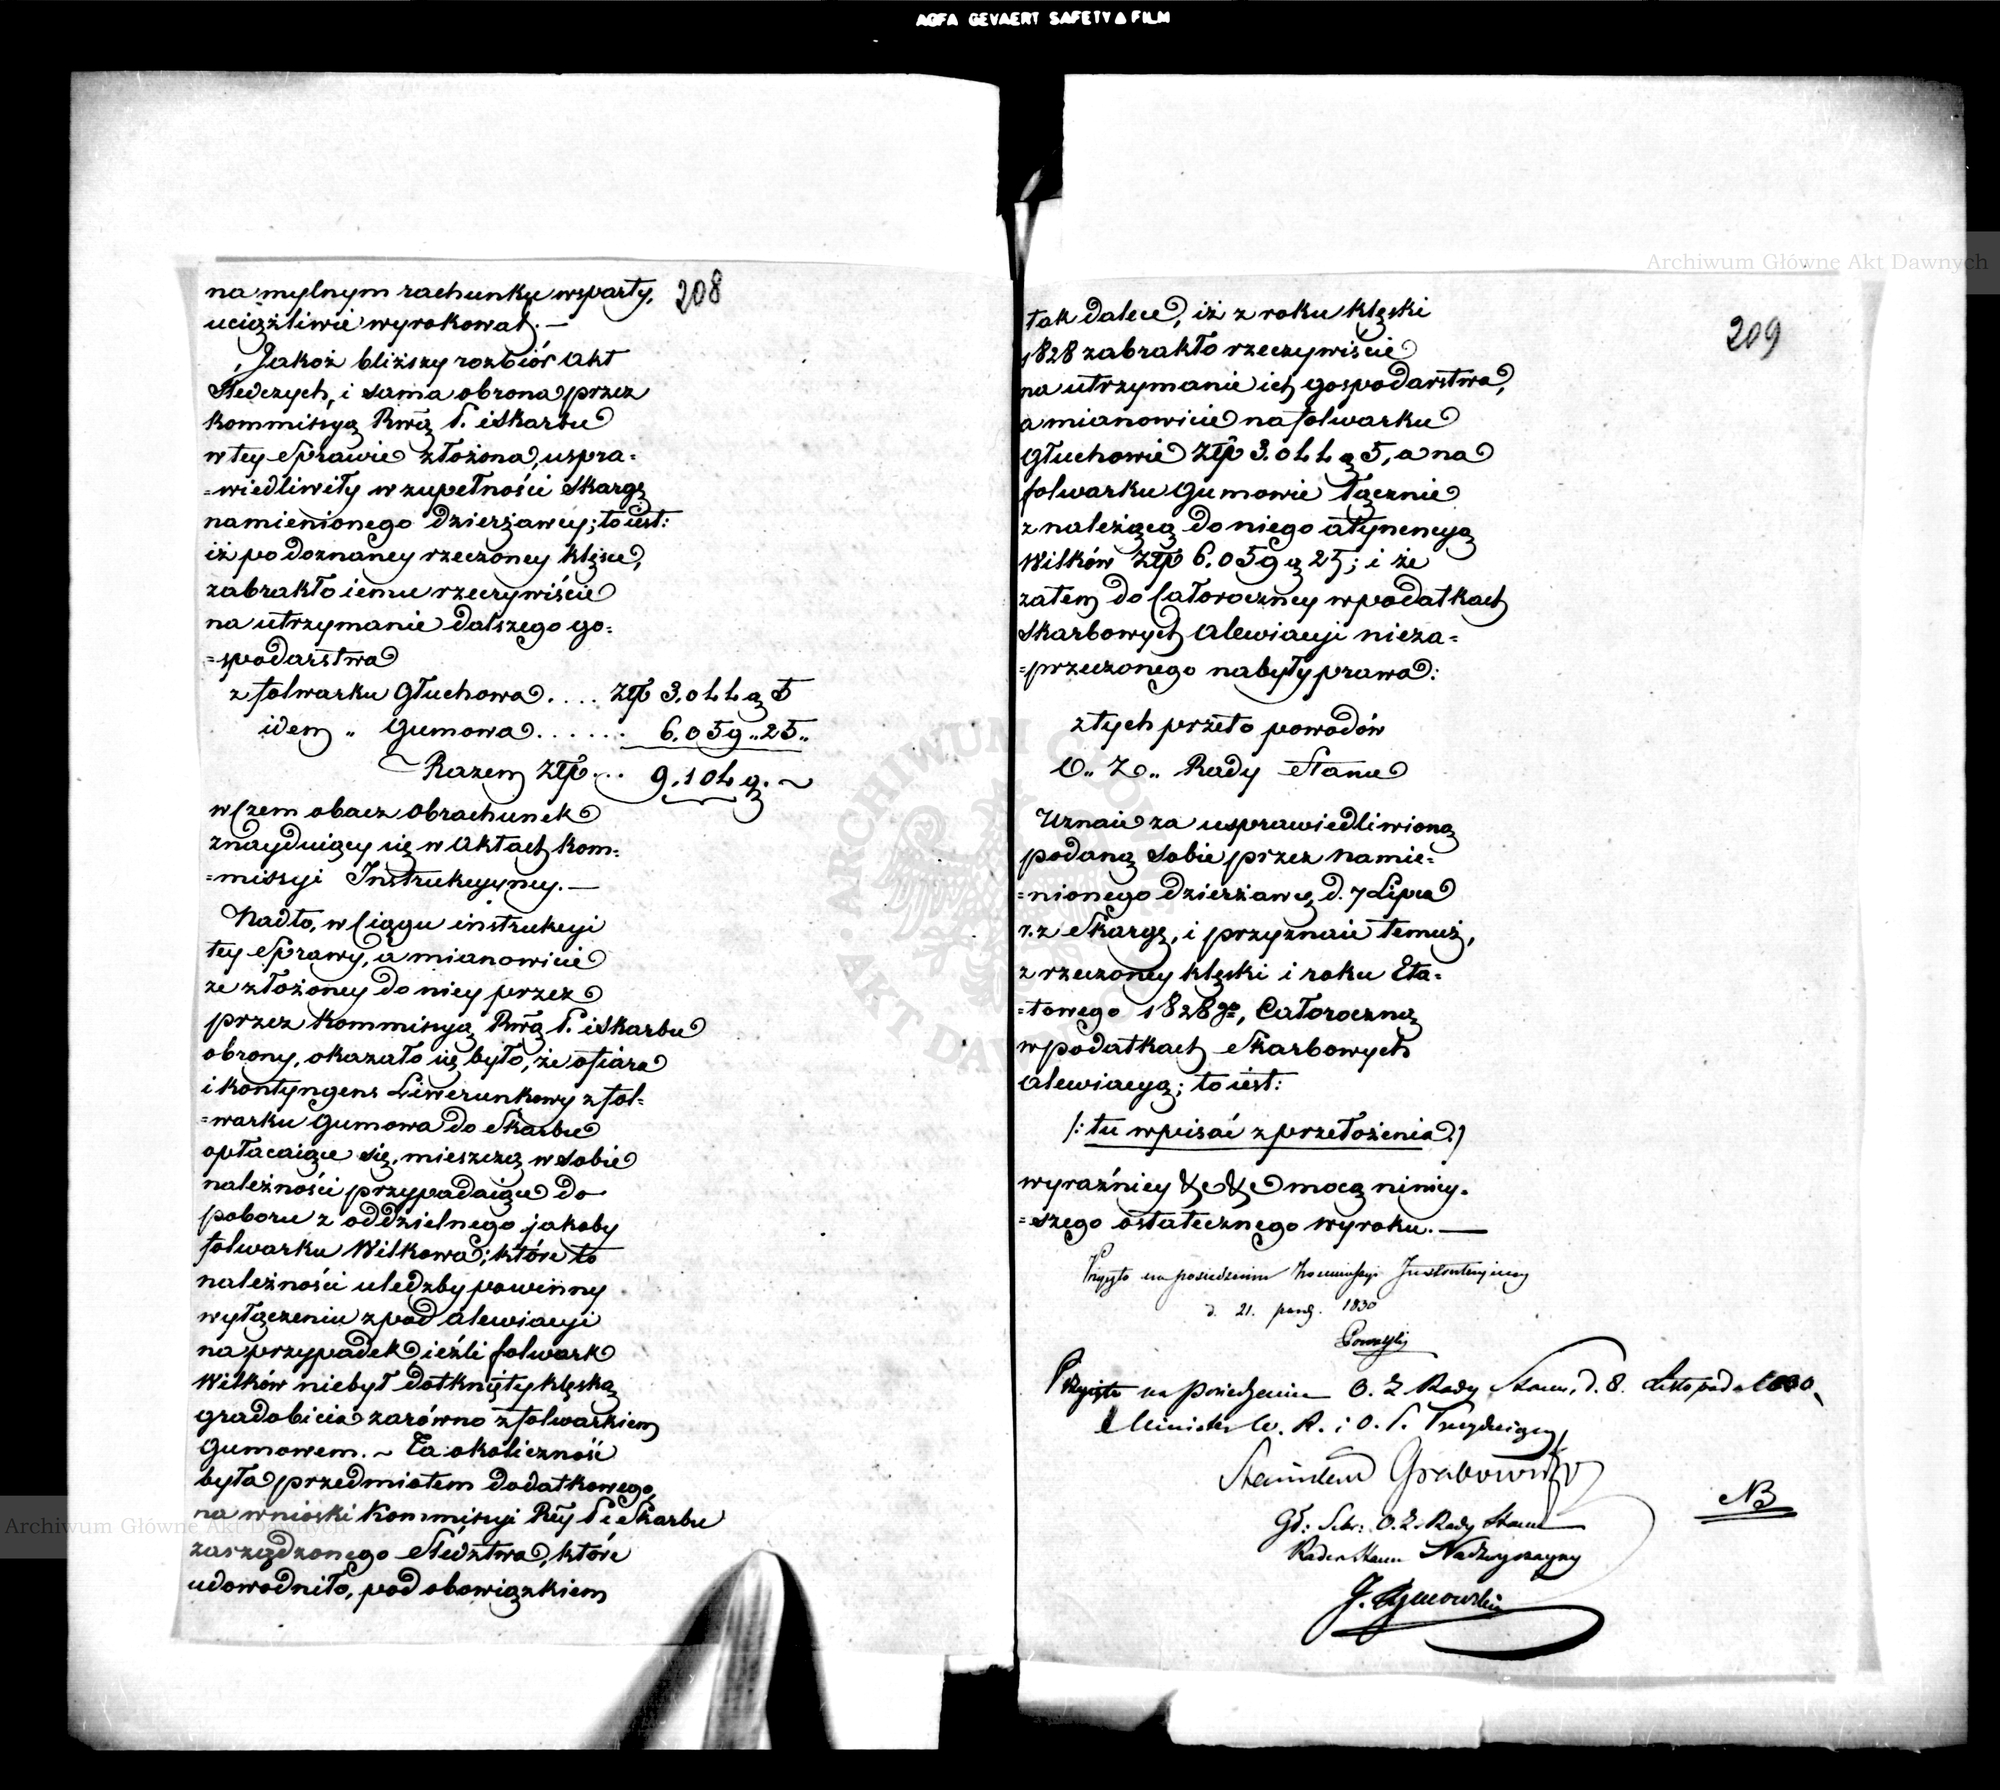 AGFA GEVAERT SAFETY FILM
Archiwum Główne Akt Dawnych
208
na mylnym rachunku wsparty,
uciążliwie wyrokował. —
Jakoż bliższy rozbiór Akt
Sledczych, i sama obrona przez
Kommissyą Rwą P. i Skarbu
w tey Sprawie złożona, uspra=
=wiedliwiły w zupełności Skargę
namienionego dzierżawcy; to iest:
iż po doznaney rzeczoney klęsce,
zabrakło iemu rzeczywiście
na utrzymanie dalszego go=
=spodarstwa
z folwarku Głuchowa .... Złp 3.044 g 5
idem „ Gumowa ...... 6.059 „ 25 „
Razem Złp ... 9.104 g. ~
w czem obacz Obrachunek
znayduiący się w Aktach Kom=
=missyi Instrukcyyney. —
Nadto, w ciągu instrukcyi
tey Sprawy, a mianowicie
ze złożoney do niey przez
przez Kommissyą Rwą P. i Skarbu
obrony, okazało się było, że ofiara
i kontyngens Liwerunkowy z fol=
=warku Gumowa do Skarbu
opłacaiące się, mieszczą w sobie
należności przypadaiące do
poboru z oddzielnego jakoby
folwarku Wilkowa; które to
należności uledzby powinny
wyłączeniu z pod alewiacyi
na przypadek, ieżli folwark
Wilków niebył dotknięty klęską
gradobicia zarówno z folwarkiem
Gumowem. ~ Ta okoliczność
była przedmiotem dodatkowego,
na wnioski Kommissyi Rey P. i Skarbu
zasządzonego Śledztwa, które
udowodniło, pod obowiązkiem
209
tak dalece, iż z roku klęski
1828 zabrakło rzeczywiście
na utrzymanie ich gospodarstwa,
a mianowicie na folwarku
Głuchowie Złp 3.044 g 5, a na
folwarku Gumowie łącznie
z należącą do niego atynencyą
Wilków Złp 6.059 g 25; i że
zatem do całoroczney w podatkach
Skarbowych alewiacyi nieza=
=przeczonego nabyły prawa:
z tych przeto powodów
O. Z. Rady Stanu
Uznaie za usprawiedliwioną
podaną sobie przez namie=
=nionego dzierżawcę, d. 7 Lipca
r. z Skargę, i przyznaie temuż,
z rzeczoney klęski i roku Eta=
=towego 1828go, Całoroczną
w podatkach Skarbowych
alewiacyą; to iest:
/: tu wpisać z przełożenia :/
wyraźniey &c &c mocą niniey=
=szego ostatecznego wyroku. —
Przyięto na posiedzeniu Kommissyi Instrukcyiney
d. 21. paźd. 1830
Przyięto na posiedzeniu O. Z Rady Stanu, d. 8. Listopada 1830.
Minister W. R. i O. P. Prezyduiący
Stanisław Grabowski
NB
Gł: Sekr: O. Z. Rady Stanu
Radca Stanu Nadzwyczayny